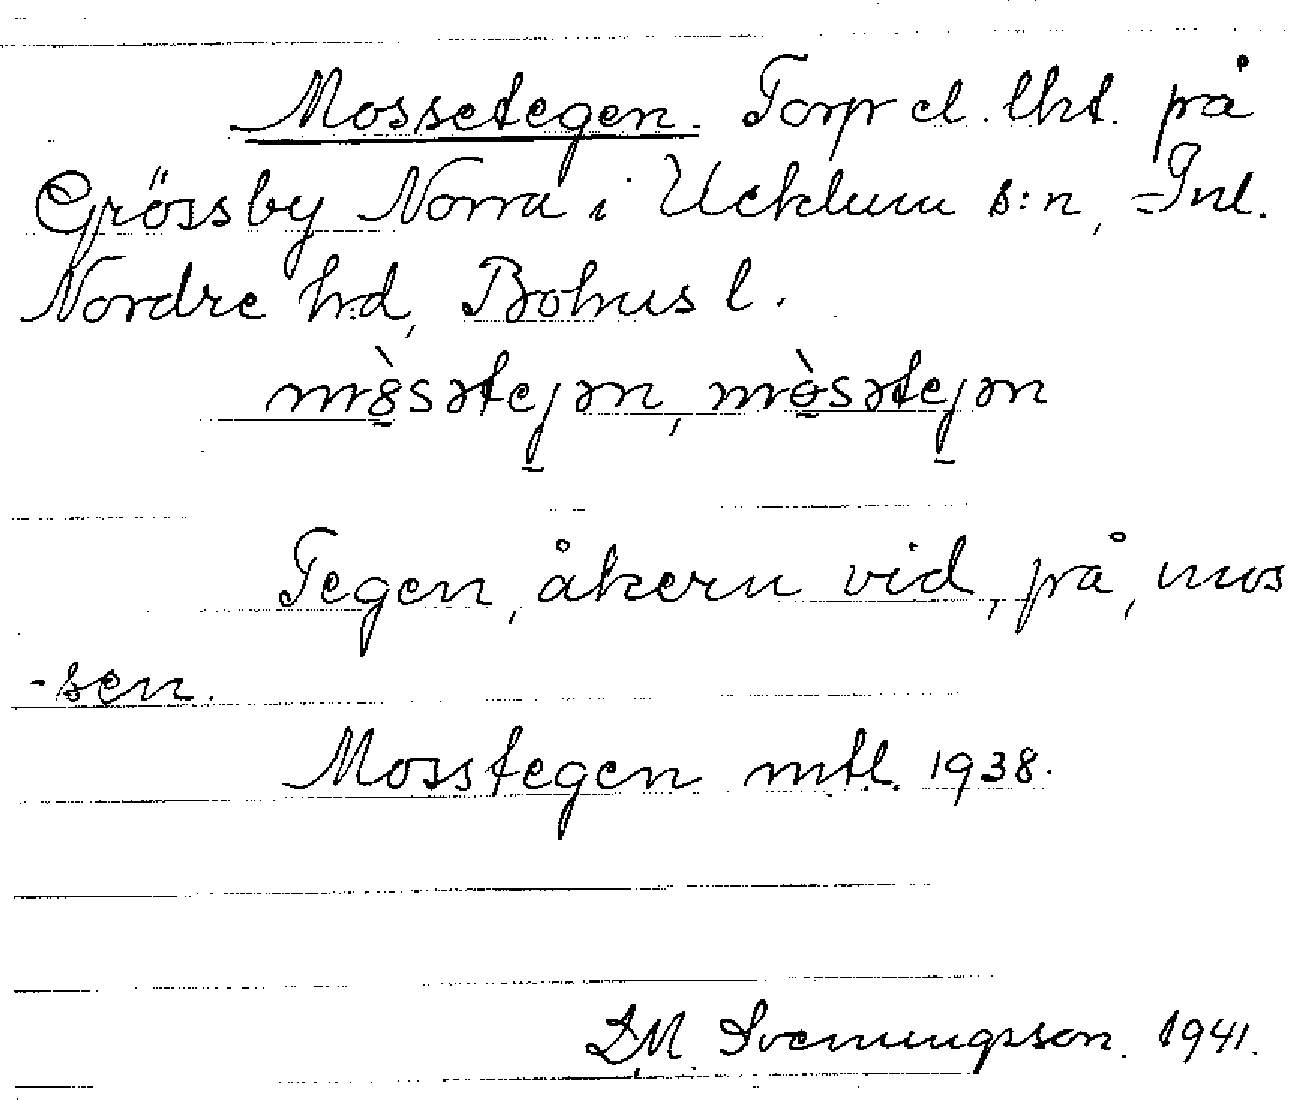 Mossetegen. Torp el. lht. på
Grössby Norra i Ucklum s:n, Inl.
Nordre hd, Bohus l.
mòsətejən, mòsətejən
Tegen, åkern vid, på, mos
-sen.
Mosstegen mtl. 1938.
Svenungsson. 1941.